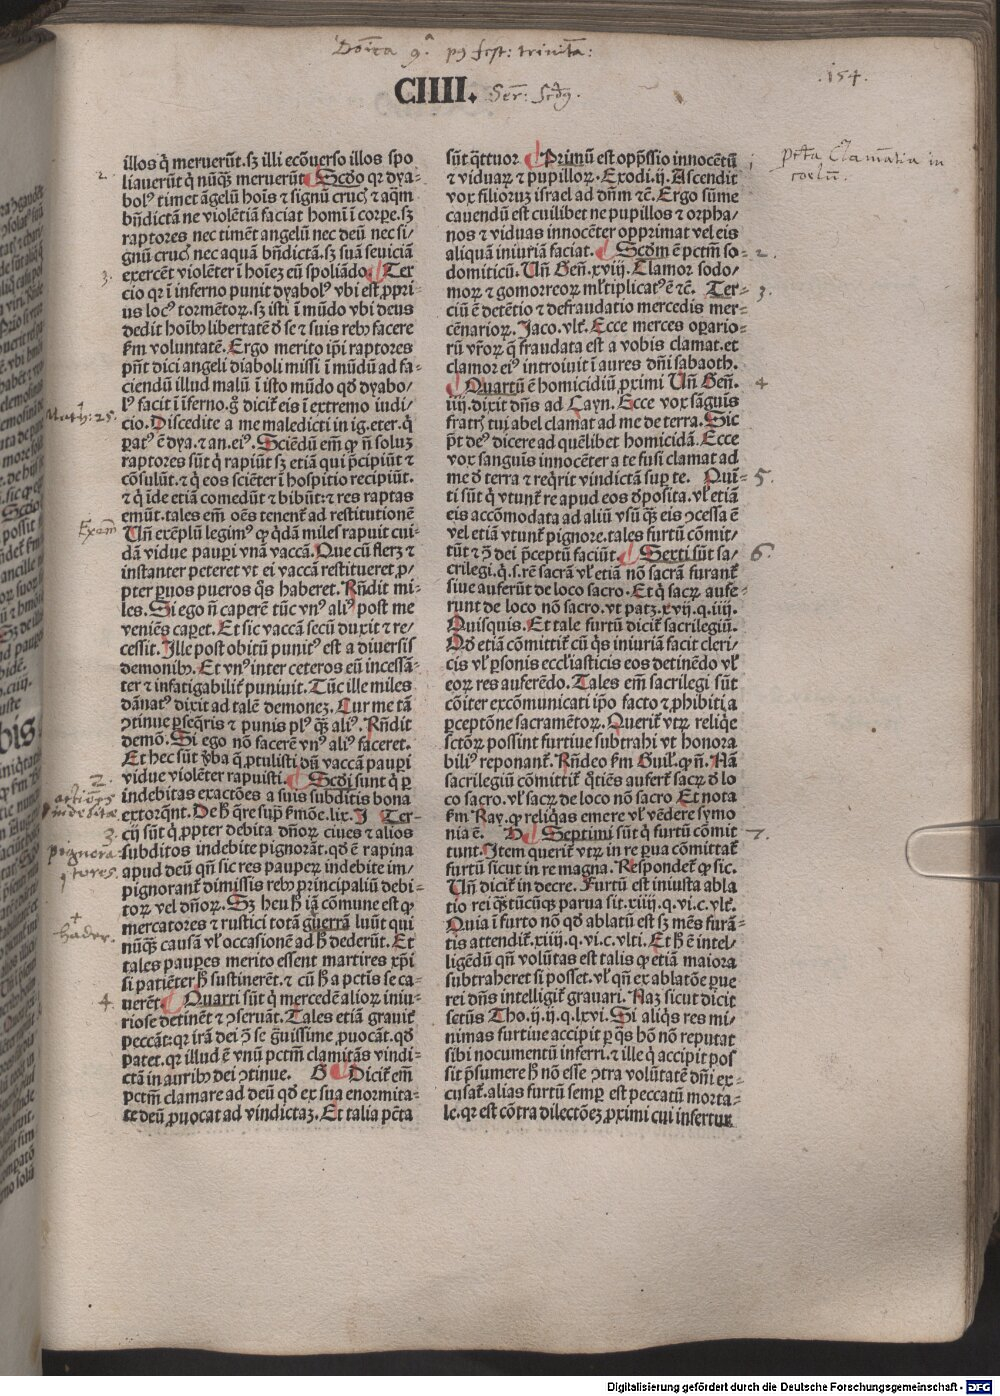 Doīca 9ª pꝰ fest: trinita:
CIIII.
Ser: Scdꝰ.
.154.
illos q̇ meruerūt.sꝫ illi ecōuerso illos spo
liauerūt q̇ nūq̃ꝫ meruerūt Scd̓o qꝛ dya⸗
bolꝰ timet āgelū hoīs ⁊ signū crucꝭ ⁊ aq̄m
bn̄dictā ne violētiā faciat homī ī corꝑe.sꝫ
raptores nec timēt angelū nec deū nec si/
gnū crucꝭ nec aquā bn̄dictā.sꝫ suā seuiciā
exercēt violēter ī hoīeꝫ eū spoliādo. Ter
cio qꝛ ī inferno punit dyabolꝰ vbi est ꝓpri⸗
us locꝰ tormētoꝝ.sꝫ isti ī mūdo vbi deus
dedit hoībꝰ libertatē d̓ se ⁊ suis rebꝰ facere
fm voluntatē. Ergo merito ip̄i raptores
pn̄t dici angeli diaboli missi ī mūdū ad fa⸗
ciendū illud malū ī isto mūdo qd̓ dyabo/
lꝰ facit ī īferno.g̊ dicit̄ eis ī extremo iudi/
cio. Discedite a me maledicti in ig.eter.q̇
ꝑatꝰ ē dya.⁊ an.eiꝰ. Sciēdū em̄ ꝙ nō soluꝫ
raptores sūt q̇ rapiūt sꝫ etiā qui p̄cipiūt ⁊
cōsulūt.⁊ q̇ eos sciēter ī hospitio recipiūt.
⁊ q̇ īde etiā comedūt ⁊ bibūt:⁊ res raptas
emūt.tales em̄ oēs tenent̄ ad restitutionē
Un̄ exēplū legimꝰ ꝙ q̇dā miles rapuit cui/
dā vidue pauꝑi vnā vaccā. Que cū flerꝫ ⁊
instanter peteret vt ei vaccā restitueret ꝓ/
pter ꝑuos pueros q̊s haberet. Rn̄dit mi⸗
les. Si ego nō caperē tūc vnꝰ aliꝰ post me
veniēs caꝑet. Et sic vaccā secū duxit ⁊ re/
cessit. Ille post obitū punitꝰ est a diuersis
demonibꝰ. Et vnꝰ inter ceteros eū incessā⸗
ter ⁊ infatigabilit̄ puniuit. Tūc ille miles
dānatꝰ dixit ad talē demoneꝫ. Cur me tā
ꝯtinue ꝑseq̄ris ⁊ punis plꝰ q̄ꝫ aliꝰ. Rn̄dit
demō. Si ego nō facerē vnꝰ aliꝰ faceret.
Et hec sūt v̓ba q̄ ꝓtulisti dū vaccā pauꝑi
vidue violēter rapuisti. Scd̓i sunt q̇ ꝑ
indebitas exactōes a suis subditis bona
extorq̄nt. De h̓ q̄re supͣ ẜmōe.lix. I Ter⸗
cij sūt q̇ ꝓpter debita dn̄oꝝ ciues ⁊ alios
subditos indebite pignorāt.qd̓ ē rapina
apud deū qn̄ sic res pauꝑeꝝ indebite im/
pignorant̄ dimissis rebꝰ pͥncipaliū debi⸗
toꝝ vel dn̄oꝝ. Sꝫ heu h̓ iā cōmune est ꝙ
mercatores ⁊ rustici totā guerrā luūt qui
nūq̄ꝫ causā vl̓ occasionē ad h̓ dederūt. Et
tales pauꝑes merito essent martires xp̄i
si patiēter h̓ sustinerēt.⁊ cū h̓ a pctīs se ca⸗
uerēt. Quarti sūt q̇ mercedē alioꝝ iniu⸗
riose detinēt ⁊ ꝯseruāt. Tales etiā grauit̄
peccāt:qꝛ irā dei ꝯͣ se gͣuissime ꝓuocāt.qd̓
patet.qꝛ illud ē vnū pctm̄ clamitās vindi⸗
ctā in auribꝰ dei ꝯtinue. G Dicit̄ em̄
pctm̄ clamare ad deū qd̓ ex sua enormita⸗
te deū ꝓuocat ad vindictaꝫ. Et talia pctā
sūt q̄ttuor Primū est opp̄ssio innocētū
⁊ viduaꝝ ⁊ pupilloꝝ. Exodi.ij. Ascendit
vox filioruꝫ israel ad dn̄m ⁊c̄. Ergo sūme
cauendū est cuilibet ne pupillos ⁊ orpha/
nos ⁊ viduas innocēter opprimat vel eis
aliquā iniuriā faciat. Scd̓m ē pctm̄ so⸗
domiticū. Un̄ Gen̄.xviij. Clamor sodo/
moꝝ ⁊ gomorreoꝝ ml̓tiplicatꝰ ē ⁊c̄. Ter⸗
ciū ē detētio ⁊ defraudatio mercedis mer⸗
cēnarioꝝ. Jaco.vlt̄. Ecce merces operario⸗
rū vr̄oꝝ q̄ fraudata est a vobis clamat.et
clamor eiꝰ introiuit ī aures dn̄i sabaoth.
Quartū ē homicidiū ꝓximi Un̄ Gen̄.
iiij.dixit dn̄s ad Cayn. Ecce vox sāguis
fratrꝭ tuj abel clamat ad me de terra. Sic
pt̄ deꝰ dicere ad quēlibet homicidā. Ecce
vox sanguīs innocēter a te fusi clamat ad
me d̓ terra ⁊ req̇rit vindictā suꝑ te. Quī⸗
ti sūt q̇ vtunt̄ re apud eos d̓posita.vl̓ etiā
eis accōmodata ad aliū vsū q̄ꝫ eis ꝯcessa ē
vel etiā vtunt̄ pignore.tales furtū cōmit/
tūt ⁊ ꝯͣ dei p̄ceptū faciūt. Sexti sūt sa/
crilegi.q.s.rē sacrā vl̓ etiā nō sacrā furant̄
siue auferūt de loco sacro. Et q̇ sacꝝ aufe⸗
runt de loco nō sacro.vt patꝫ.xvij.q.iiij.
Quisquis. Et tale furtū dicit̄ sacrilegiū.
Qd̓ etiā cōmittit̄ cū q̇s iniuriā facit cleri/
cis vl̓ ꝑsonis eccl̓iasticis eos detinēdo vl̓
eoꝝ res auferēdo. Tales em̄ sacrilegi sūt
cōiter excōmunicati ip̄o facto ⁊ ꝓhibiti a
ꝑceptōne sacramētoꝝ. Querit̄ vtꝝ reliq̇e
sctōꝝ possint furtiue subtrahi vt honora
biliꝰ reponant̄. Rn̄deo fm Guil.ꝙ n̄. Nā
sacrilegiū cōmittit̄ q̊tiēs aufert̄ sacꝝ d̓ lo
co sacro.vl̓ sacꝝ de loco nō sacro Et nota
fm Ray.ꝙ reliq̇as emere vl̓ vēdere symo
nia ē. H Septimi sūt q̇ furtū cōmit
tunt. Item querit̄ vtꝝ in re ꝑua cōmittat̄
furtū sicut in re magna. Respondet̄ ꝙ sic.
Un̄ dicit̄ in decre. Furtū est iniusta abla
tio rei q̄ꝫtūcūqꝫ parua sit.xiiij.q.vi.c.vlt̄.
Quia ī furto nō qd̓ ablatū est sꝫ mēs furā⸗
tis attendit̄.xiiij.q.vi.c.vlti. Et h̓ ē intel/
ligēdū qn̄ volūtas est talis ꝙ etiā maiora
subtraheret si posset.vl̓ qn̄ ex ablatōe ꝑue
rei dn̄s intelligit̄ grauari. Naꝫ sicut dicit
sctūs Tho.ij.ij.q.lxvi. Si aliq̇s res mi/
nimas furtiue accipit ꝑ q̊s hō nō reputat
sibi nocumētū inferri.⁊ ille q̇ accipit pos
sit p̄sumere h̓ nō esse ꝯtra volūtatē dn̄i ex⸗
cusat̄.alias furtū semꝑ est peccatū morta⸗
le.qꝛ est cōtra dilectōeꝫ ꝓximi cui infertur
2.
3.
Math: 25.
Exam̄
2.
indebitæ
3.
pignora⸗
tores.
+
hader.
4.
pctā Clamātia in
coelū.
1
2.
3.
4
5.
6.
7.
Digitalisierung gefördert durch die Deutsche Forschungsgemeinschaft - DFG